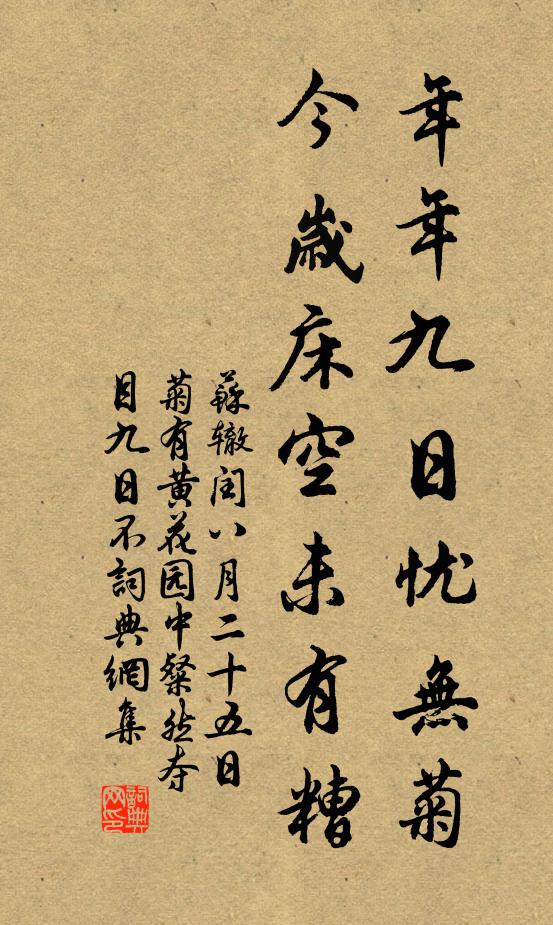 年年九日忧無菊
今歲床空未有糟
蘇辙闰八月二十五日
菊有黄花园中粲然夺
目九日不詞典網集
詞典网印